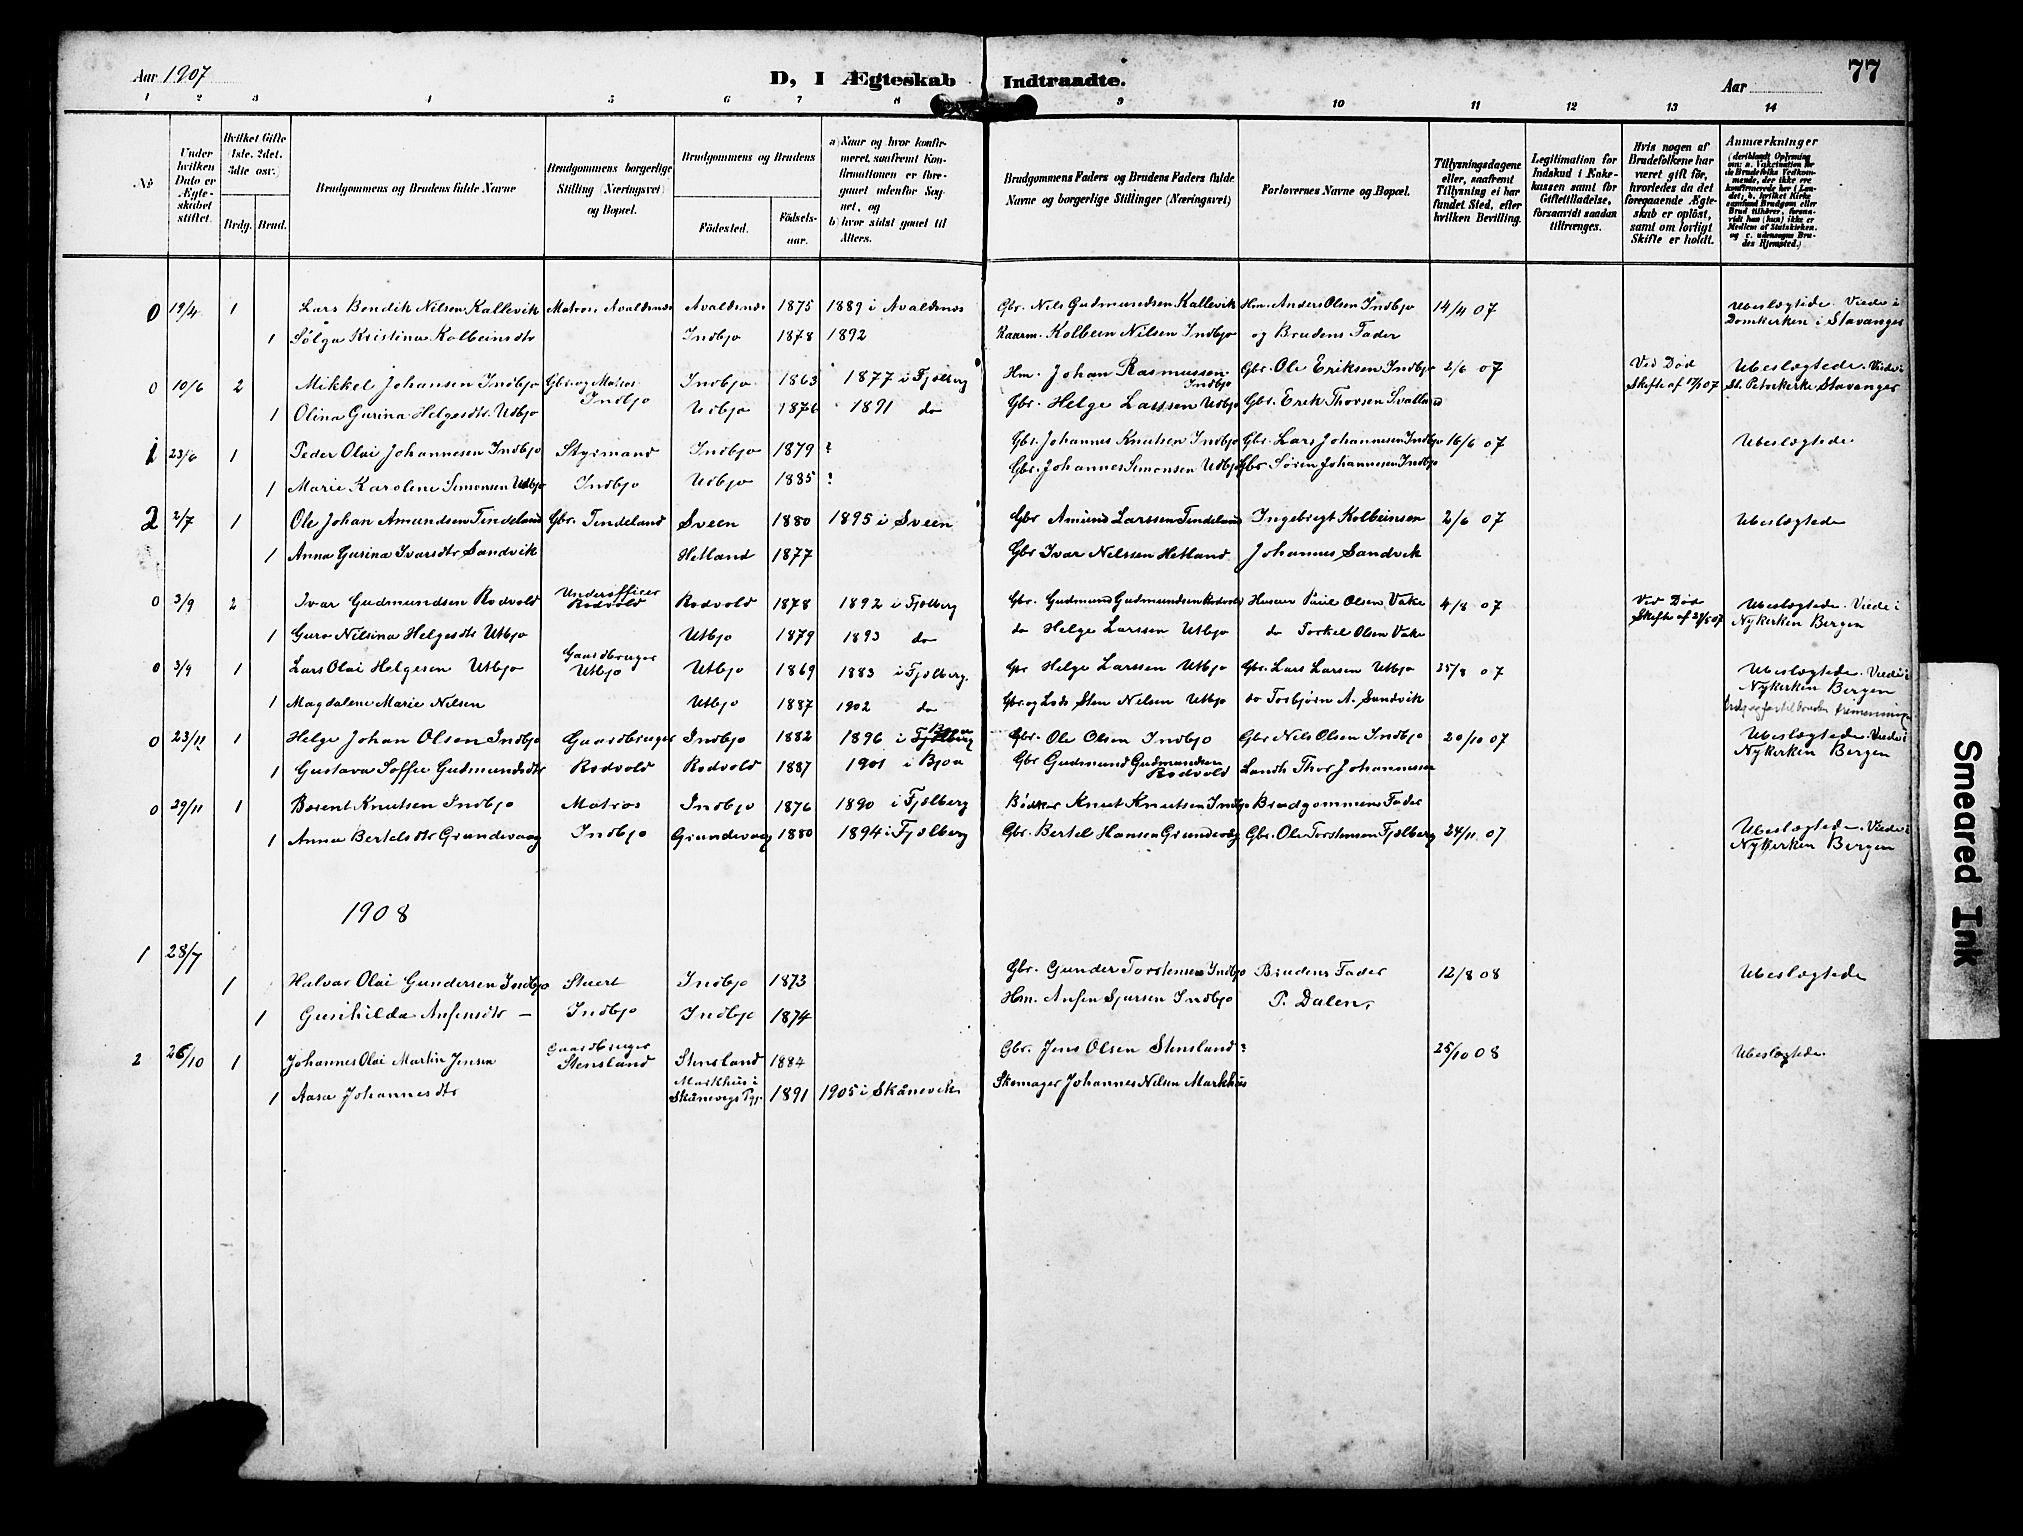 Aar 1907
D, I Ægteskab Indtraadte.
Aar
77
1 2 3 4 5 6 7 8 9 10 11 12 13 14
No
Under hvilken Dato er Ægteskabet stiftet.
Hvilket Gifte (1ste, 2det, 3die osv.)
Brdg. Brud.
Brudgommens og Brudens fulde Navne
Brudgommens borgerlige Stilling (Næringsvei) og Bopæl.
Brudgommens og Brudens
Födested.
Födselsaar.
a) Naar og hvor konfirmeret, saafremt Konfirmationen er foregaaet udenfor Sognet, og
b) hvor sidst gaaet til Alters.
Brudgommens Faders og Brudens Faders fulde Navne og borgerlige Stillinger (Næringsvei)
Forlovernes Navne og Bopæl.
Tillysningsdagene eller, saafremt Tillysning ei har fundet Sted, efter hvilken Bevilling.
Legitimation for Indskud i Enkekassen samt for Giftetilladelse, forsaavidt saadan tiltrænges.
Hvis nogen af Brudefolkene har været gift før, hvorledes da det foregaaende Ægteskab er oplöst, samt om lovligt Skifte er holdt.
Anmærkninger
0 19/4 1 Lars Bendik Nilsen Kallevik Matros. Avaldsnes Avaldsnes 1875 1889 i Avaldsnes Gbr. Nils Gudmundsen Kallevik Hm. Anders Olsen Indbjo 14/4 07 Ubeslægtede. Viede i
1 Sølga Kristina Kolbeinsdtr Indbjo 1878 1892 Kaarm. Kolbein Nilsen Indbjo og Brudens Fader Domkirken i Stavanger
0 10/6 2 Mikkel Johansen Indbjo Gbr. og Matros Indbjo 1863 1877 i Fjelberg Hm. Johan Rasmussen Indbjo Gbr. Ole Eriksen Indbjo 2/6 07 Ved Död Ubeslægtede. Viede i
Indbjo Skifte af 17/1 07 St. Petrikirke Stavanger
1 Olina Gurina Helgesdtr. Utbjo Utbjo 1876 1891 do Gbr. Helge Larssen Utbjo Gbr. Erik Thorsen Svalland
1 23/6 1 Peder Olai Johannesen Indbjo Styrmand Indbjo 1879 ? Gbr. Johannes Knutsen Indbjo Gbr. Lars Johannesen Indbjo 16/6 07 Ubeslægtede
1 Marie Karoline Simonsen Utbjo Indbjo Utbjo 1885 ? Gbr. Johannes Simonsen Utbjo Gbr Sören Johannesen Indbjo
2 2/7 1 Ole Johan Amundsen Tindeland Gbr. Tindeland Sveen 1880 1895 i Sveen Gbr Amund Larssen Tindeland Ingebrigt Kolbeinsen 2/6 07 Ubeslægtede
1 Anna Gurina Ivarsdtr Sandvik Hetland 1877 Gbr Ivar Nilssen Hetland Johannes Sandvik
0 3/9 2 Ivar Gudmundsen Rodvold Underofficer Rodvold Rodvold 1878 1892 i Fjelberg Gbr. Gudmund Gudmundsen Rodvold Husm Paul Olsen Vake 4/8 07 Ved Död Ubeslægtede. Viede i
1 Guro Nilsina Helgesdtr Utbjo Utbjo 1879 1893 do do Helge Larssen Utbjo do Torkel Olsen Vake Skifte af 27/5 07 Nykirken Bergen
0 3/9 1 Lars Olai Helgesen Utbjo Gaardbruger Utbjo Utbjo 1869 1883 i Fjelberg. Gbr Helge Larssen Utbjo Gbr. Lars Larsen Utbjo 25/8 07 Ubeslægtede. Viede i
1 Magdalene Marie Nilsen Utbjo 1887 1902 do Gbr. og Lods Sten Nilsen Utbjo do Torbjørn A. Sandvik Nykirken Bergen
0 23/11 1 Helge Johan Olsen Indbjo Gaardbruger Indbjo 1882 1896 i Fjelberg Gbr. Ole Olsen Indbjo Gbr Nils Olsen Indbjo 20/10 07 Ubeslægtede. Viede i
1 Gustava Soffie Gudmundsdtr Rodvold Rodvold 1887 1901 i Bjoa Gbr Gudmund Gudmundsen Rodvold Landh Thor Johannessen Nykirken Bergen
0 29/11 1 Berent Knutsen Indbjo Matros Indbjo 1876 1890 i Fjelberg Bödker Knut Knutsen Indbjo Brudgommens Fader
1 Anna Bertelsdtr Grundevaag Indbjo Grundevaag 1880 1894 i Fjelberg Gbr. Bertel Hansen Grundevåg Gbr. Ole Torstensen Fjelberg 24/11 07 Ubeslægtede. Viede i
Nykirken Bergen
1908
1 28/7
1 Halvor Olai Gundersen Indbjo Stuert Indbjo 1873 Gbr. Gunder Torstensen Indbjo Brudens Fader 12/8 08 Ubeslægtede
1 Gunhilda Anfinsdtr — Indbjo Indbjo 1874 Hm. Anfin Sjursen Indbjo P. Dalen,
2 26/10 1 Johannes Olai Martin Jensen Gaardbruger Stensland Stensland 1884 Gbr. Jens Olsen Stensland ? 25/10 08 Ubeslægtede.
1 Aasa Johannesdtr Markhus i Skånevigs Pgj. 1891 1905 i Skånevik Skomager Johannes Nilsen Markhus
Smeared Ink